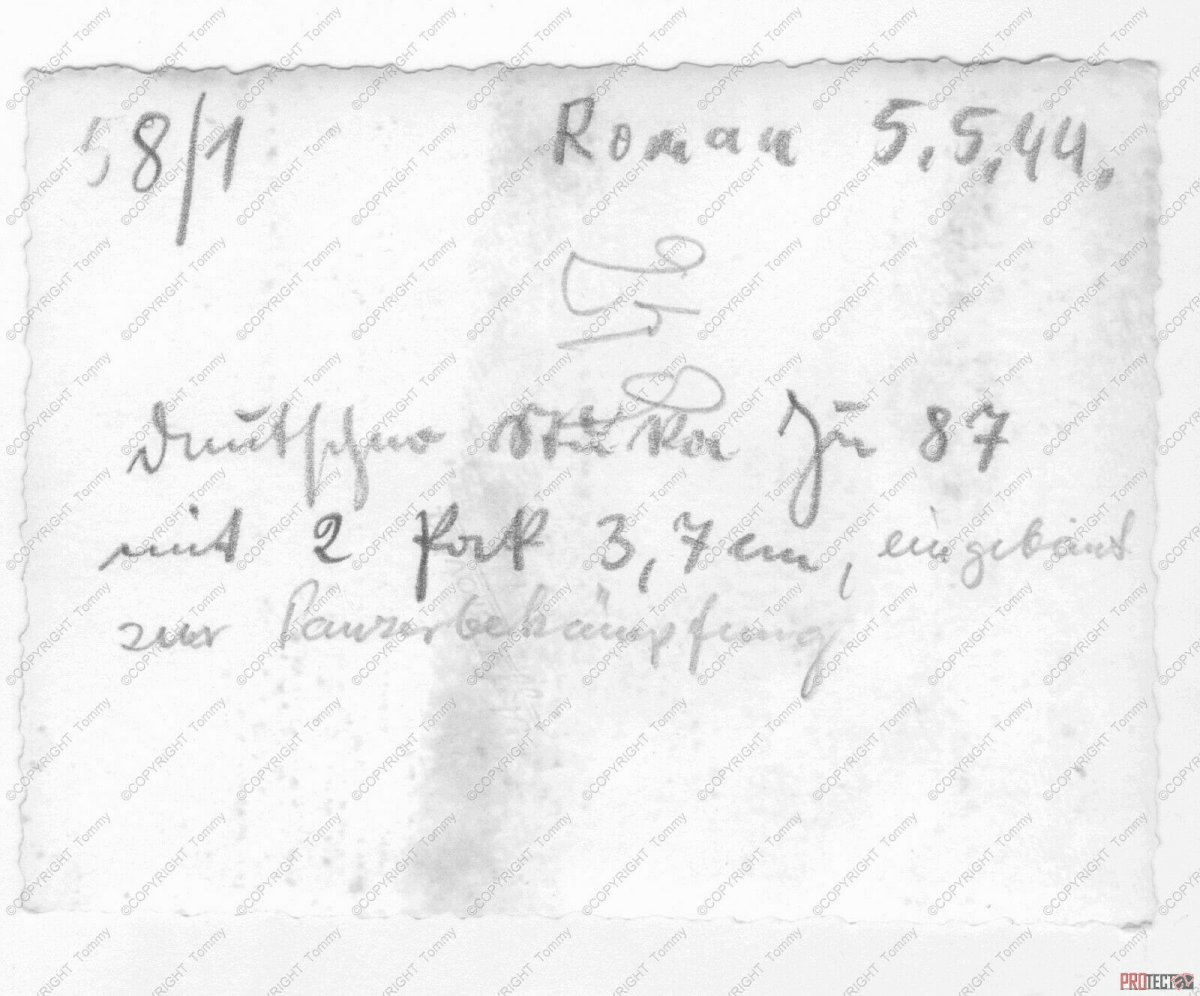 58/1 Roman 5.5.44.
deutscher Stuka Ju 87
mit 2 Pak 3,7 cm, eingebaut
zur Panzerbekämpfung
©COPYRIGHT Tommy
PROTECT